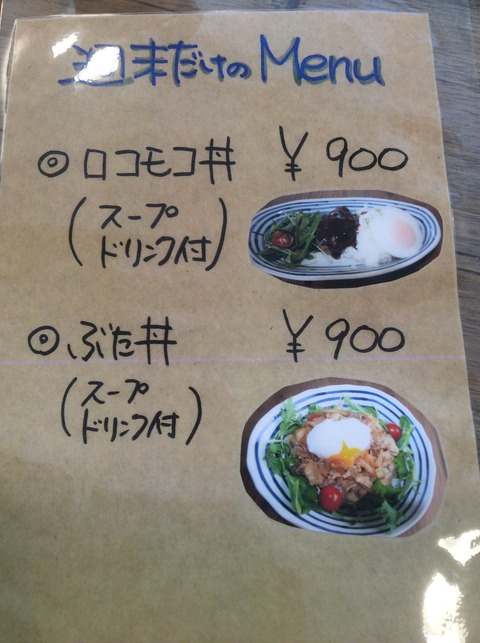 週末だけのMenu
◎ロコモコ丼 ¥900
(スープ
ドリンク付)
◎ぶた丼 ¥900
(スープ
ドリンク付)